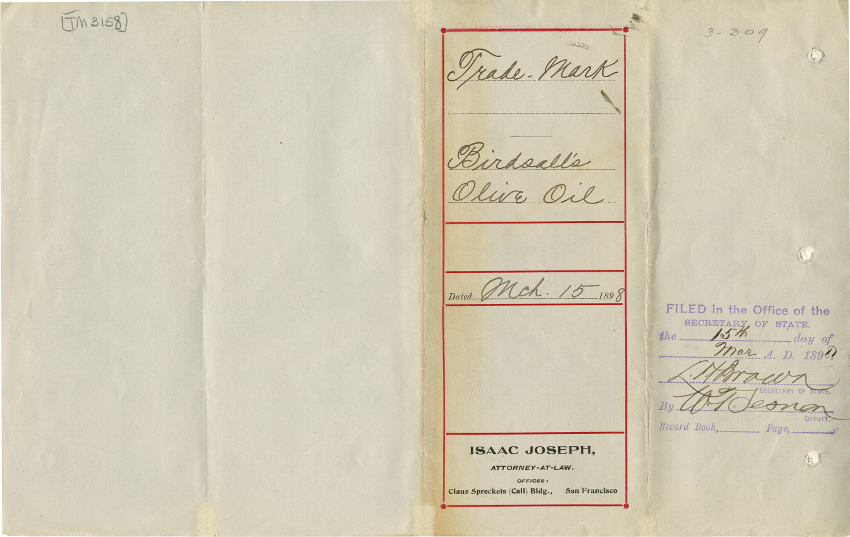 [TM3158]
3-209
Trade-Mark
Birdsall's
Olive Oil
Dated Mch. 15 1898
ISAAC JOSEPH,
ATTORNEY-AT-LAW.
OFFICES:
Claus Spreckels (Call) Bldg., San Francisco
FILED in the Office of the
SECRETARY OF STATE.
the 15th day of
Mar A. D. 1898
L. H. Brown
SECRETARY OF STATE.
By
DEPUTY.
Record Book, Page,